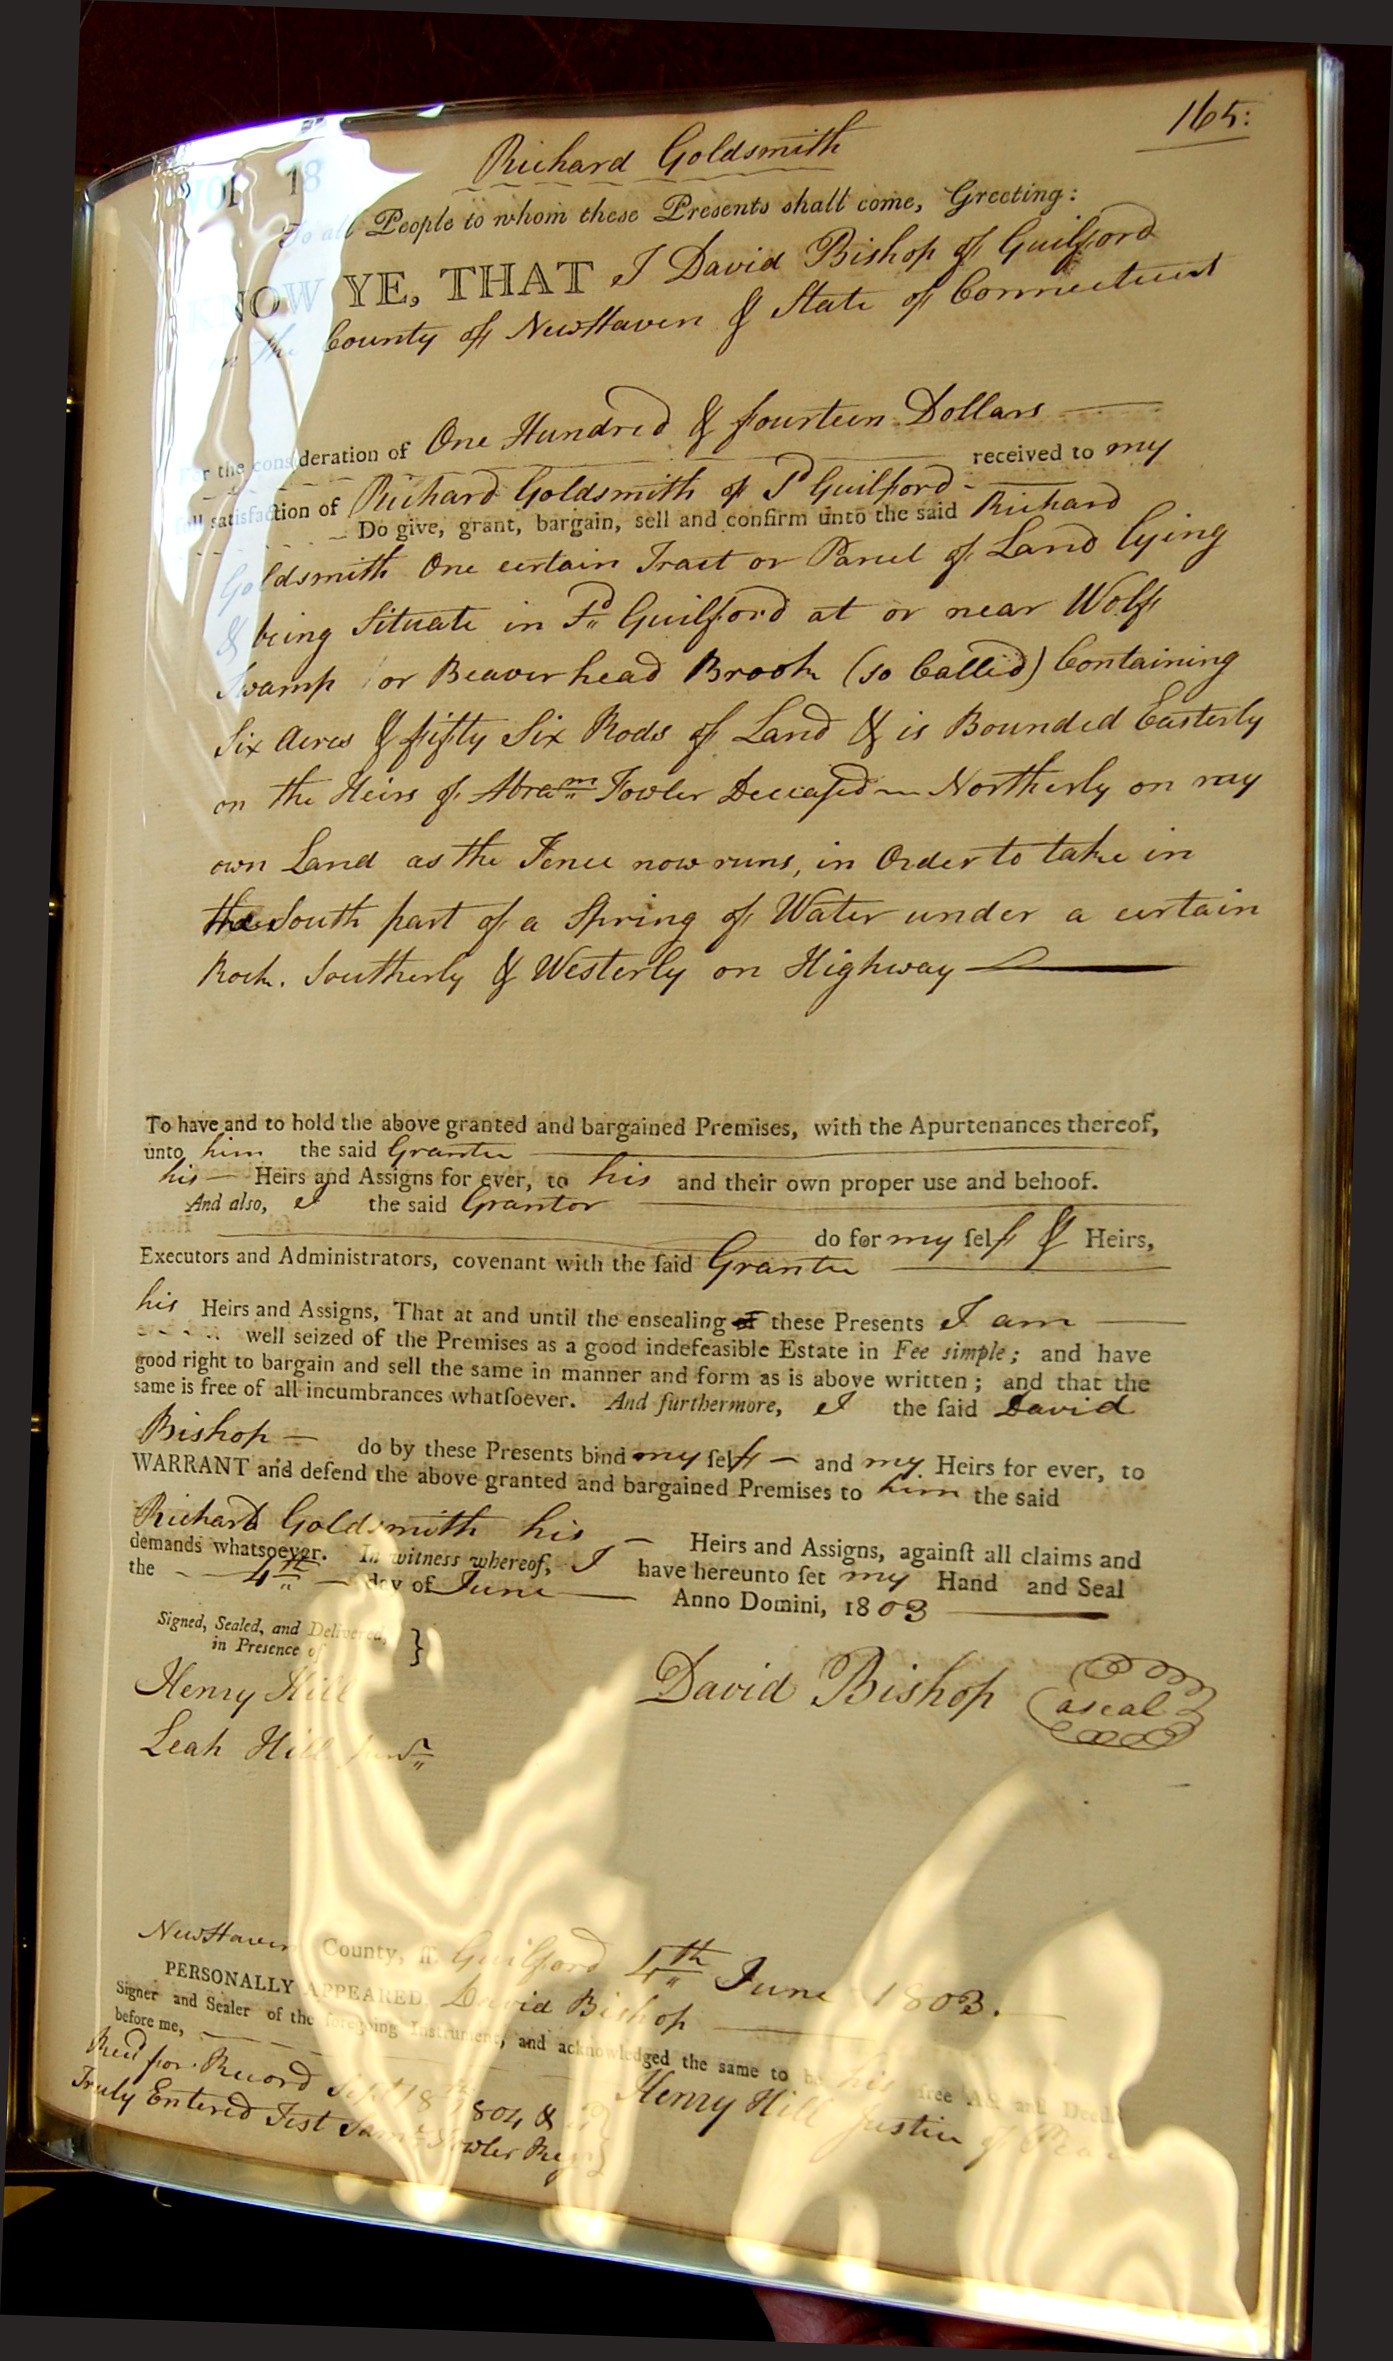 165:
VOL 18
Richard Goldsmith
To all People to whom these Presents shall come, Greeting:
KNOW YE, THAT I David Bishop of Guilford
in the County of NewHaven & State of Connecticut
For the consideration of One Hundred & fourteen Dollars
received to my
full satisfaction of Richard Goldsmith of Sd Guilford
Do give, grant, bargain, sell and confirm unto the said Richard
Goldsmith One certain Tract or Parcel of Land lying
& being Situate in Sd Guilford at or near Wolf
Swamp or Beaverhead Brook (so Called) Containing
Six Acres & fifty Six Rods of Land & is Bounded Easterly
on the Heirs of Abram Fowler Deceasd Northerly on my
own Land as the Fence now runs, in Order to take in
the South part of a Spring of Water under a certain
Rock. Southerly & Westerly on Highway
To have and to hold the above granted and bargained Premises, with the Apurtenances thereof,
unto him the said Grantee
his Heirs and Assigns for ever, to his and their own proper use and behoof.
And also, I the said Grantor
do for my ſelf & Heirs,
Executors and Administrators, covenant with the ſaid Grantee
his Heirs and Assigns, That at and until the ensealing of these Presents I am
well seized of the Premises as a good indefeasible Estate in Fee simple; and have
good right to bargain and sell the same in manner and form as is above written; and that the
same is free of all incumbrances whatſoever. And furthermore, I the ſaid David
Bishop do by these Presents bind my ſelf and my Heirs for ever, to
WARRANT and defend the above granted and bargained Premises to him the said
Richard Goldsmith his Heirs and Assigns, againſt all claims and
demands whatsoever. In witness whereof, I have hereunto ſet my Hand and Seal
the 4th day of June Anno Domini, 1803
Signed, Sealed, and Delivered,
in Presence of }
Henry Hill
David Bishop aseal
Leah Hill junr
NewHaven County, ſſ. Guilford 4th June 1803.
PERSONALLY APPEARED, David Bishop
Signer and Sealer of the foregoing Instrument, and acknowledged the same to be his free Act and Deed,
before me,
Henry Hill Justice of Peace
Recd for Record Sept 18th 1804 & is
Truly Entered Test Saml Fowler Regr